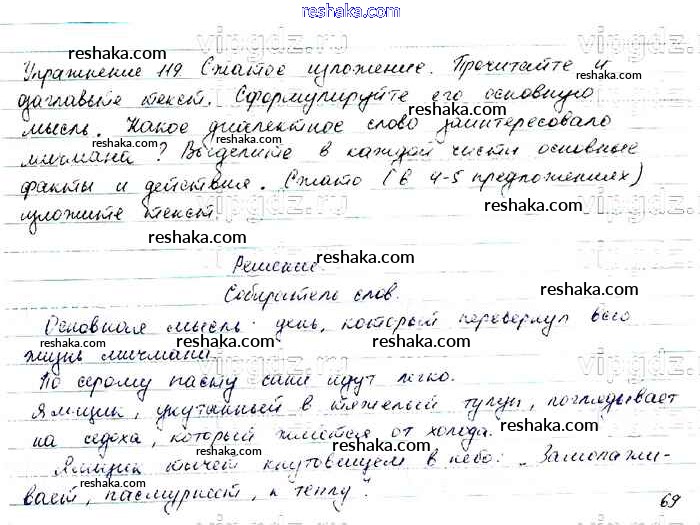 reshaka.com
Упражнение 119 Сжатое изложение. Прочитайте и
reshaka.com
озаглавьте текст. Сформулируйте его основную
reshaka.com
мысль. Какое диалектное слово заинтересовало
reshaka.com
мичмана? Выделите в каждой части основные
факты и действия. Сжато (в 4-5 предложениях)
reshaka.com
изложите текст.
reshaka.com
reshaka.com
Решение.
Собиратель слов.
reshaka.com
Основная мысль: день, который перевернул всю
reshaka.com
жизнь мичмана.
reshaka.com
По серому насту сани идут легко.
reshaka.com
Ямщик, укутанный в тяжелый тулуп, поглядывает
на седока, который жмётся от холода.
reshaka.com
Ямщик тычет кнутовищем в небо: "Замолажи-
reshaka.com
вает, пасмурнеет, к теплу".
reshaka.com
69
vipgdz.ru